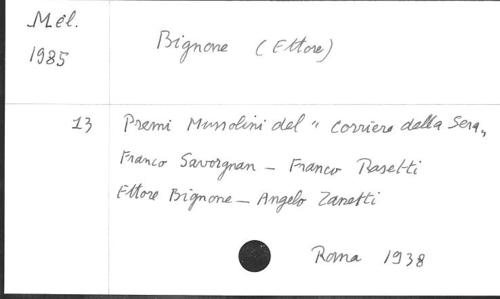 Mél.
1985
Bignone (Ettore)
13 Premi Mussolini del " Corriere della Sera "
Franco Savorgnan - Franco Rasetti
Ettore Bignone - Angelo Zanetti
Roma 1938